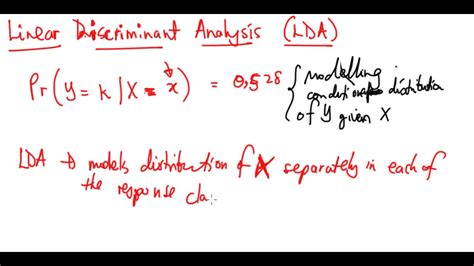 Linear Discriminant Analysis (LDA)
Pr(Y = k | X = x) = 0,528 { modelling
conditional distribution
of Y given X
LDA → models distribution of X separately in each of
the response cla